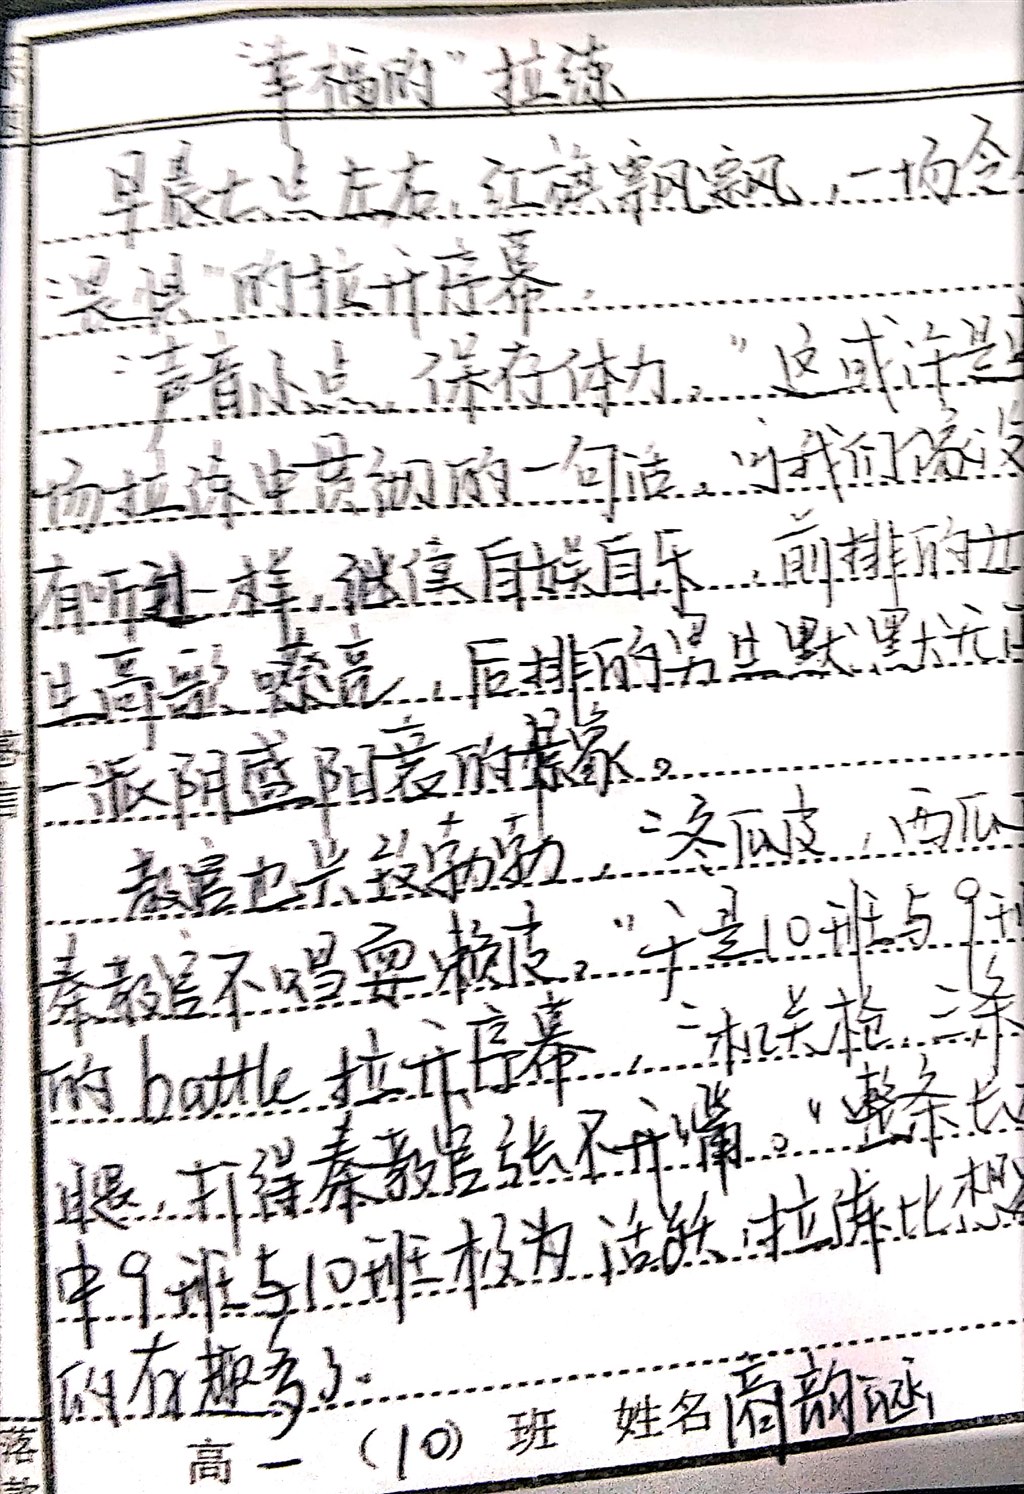 “幸福的”拉练
早晨七点左右，红旗飘飘，一场令
“畏惧”的拉开序幕，
“声音小点，保存体力。”这或许是
场拉练中贯彻的一句话。可我们像没
有听进一样，继续自娱自乐，前排的女
生高歌嘹亮，后排的男生默默无
一派阴盛阳衰的景象。
教官也兴致勃勃，“冬瓜皮，西瓜
秦教官不唱耍赖皮。”于是10班与9班
的battle拉开序幕，“机关枪，三条
腿，打得秦教官张不开嘴。”整条长
中9班与10班极为活跃，拉练比想
的有趣多了.
高一（10）班 姓名 商韵涵
落款